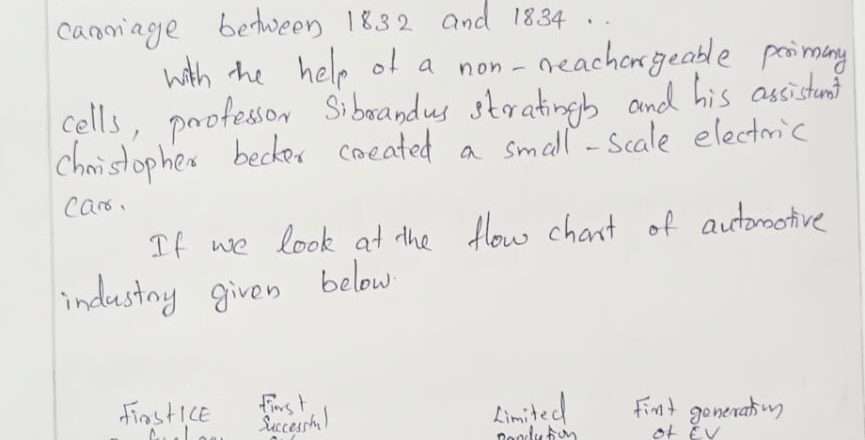 carriage between 1832 and 1834 ..
With the help of a non-reachargeable primary
cells, professor Sibrandus stratingh and his assistant
Christopher becker created a small-scale electric
car.
If we look at the flow chart of automotive
industry given below.
First ICE First Limited First generation
Successful Production of EV